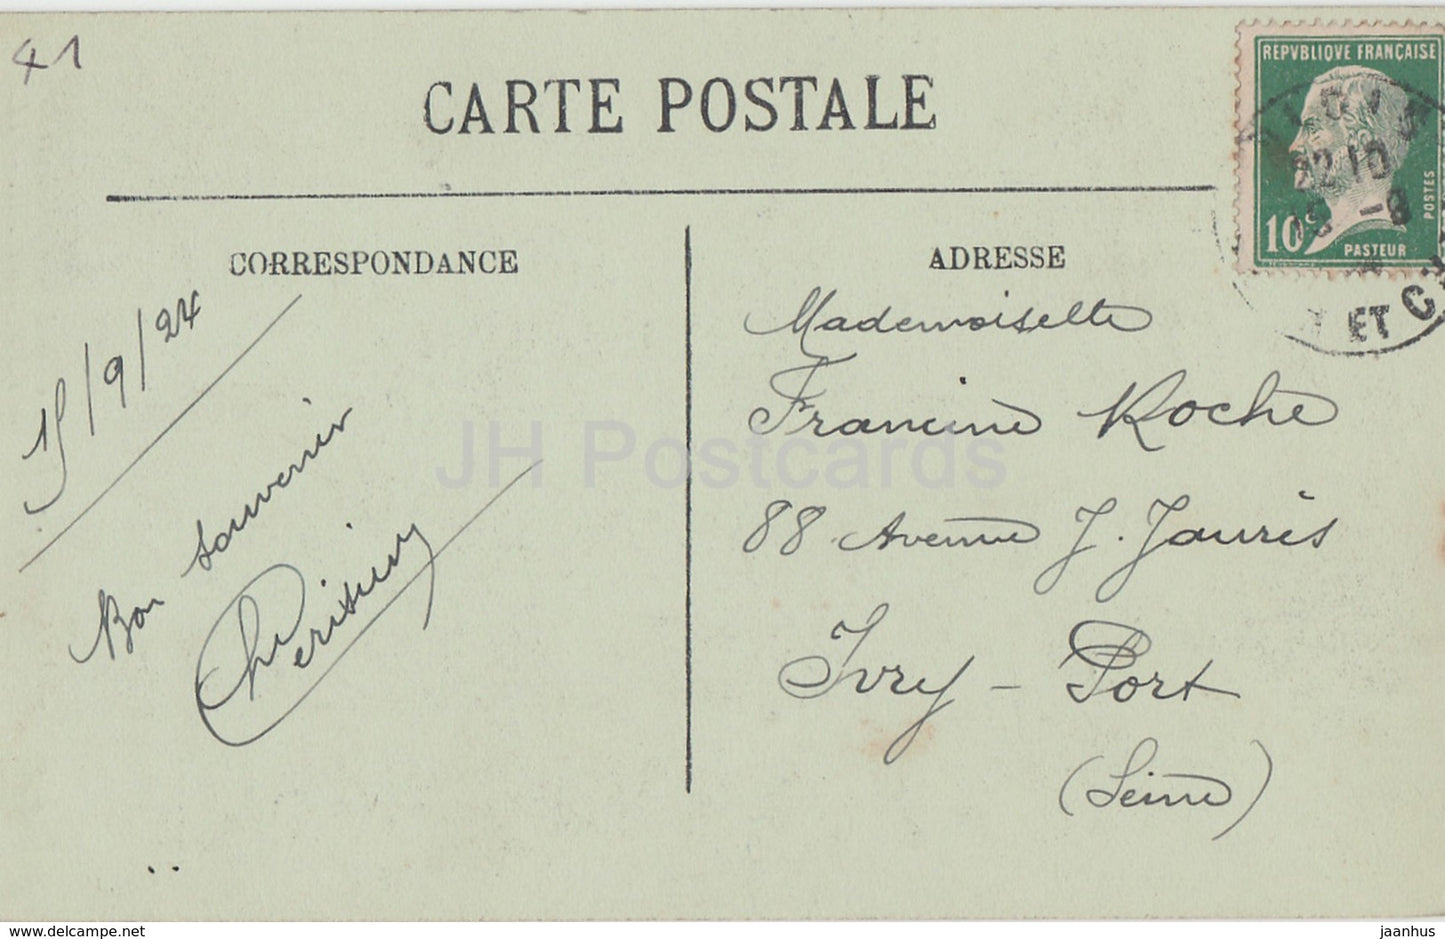 41
CARTE POSTALE
REPVBLIQVE FRANÇAISE
POSTES
10c
PASTEUR
22 10
ET
CORRESPONDANCE
15/9/24
Bon souvenir
ADRESSE
Mademoiselle
Francine Roche
88 Avenue J. Jaurès
Ivry - Port
(Seine)
JH Postcards
www.delcampe.net
jaanhus